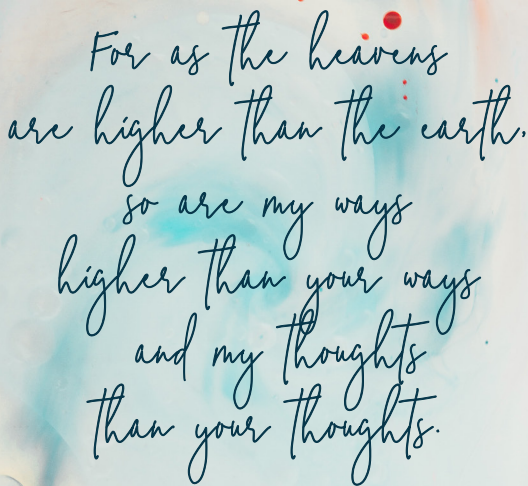 For as the heavens
are higher than the earth,
so are my ways
higher than your ways
and my thoughts
than your thoughts.